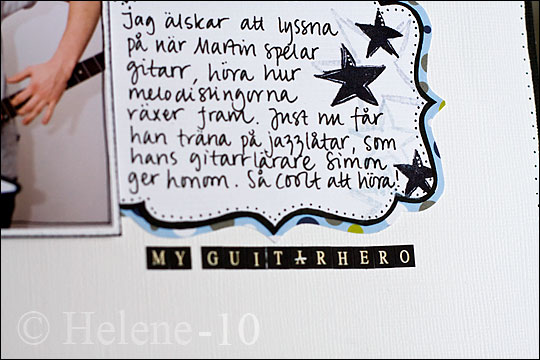 Jag älskar att lyssna
på när Martin spelar
gitarr, höra hur
melodislingorna
växer fram. Just nu får
han träna på jazzlåtar, som
hans gitarrlärare Simon
ger honom. Så coolt att höra!
MY GUITARHERO
© Helene-10